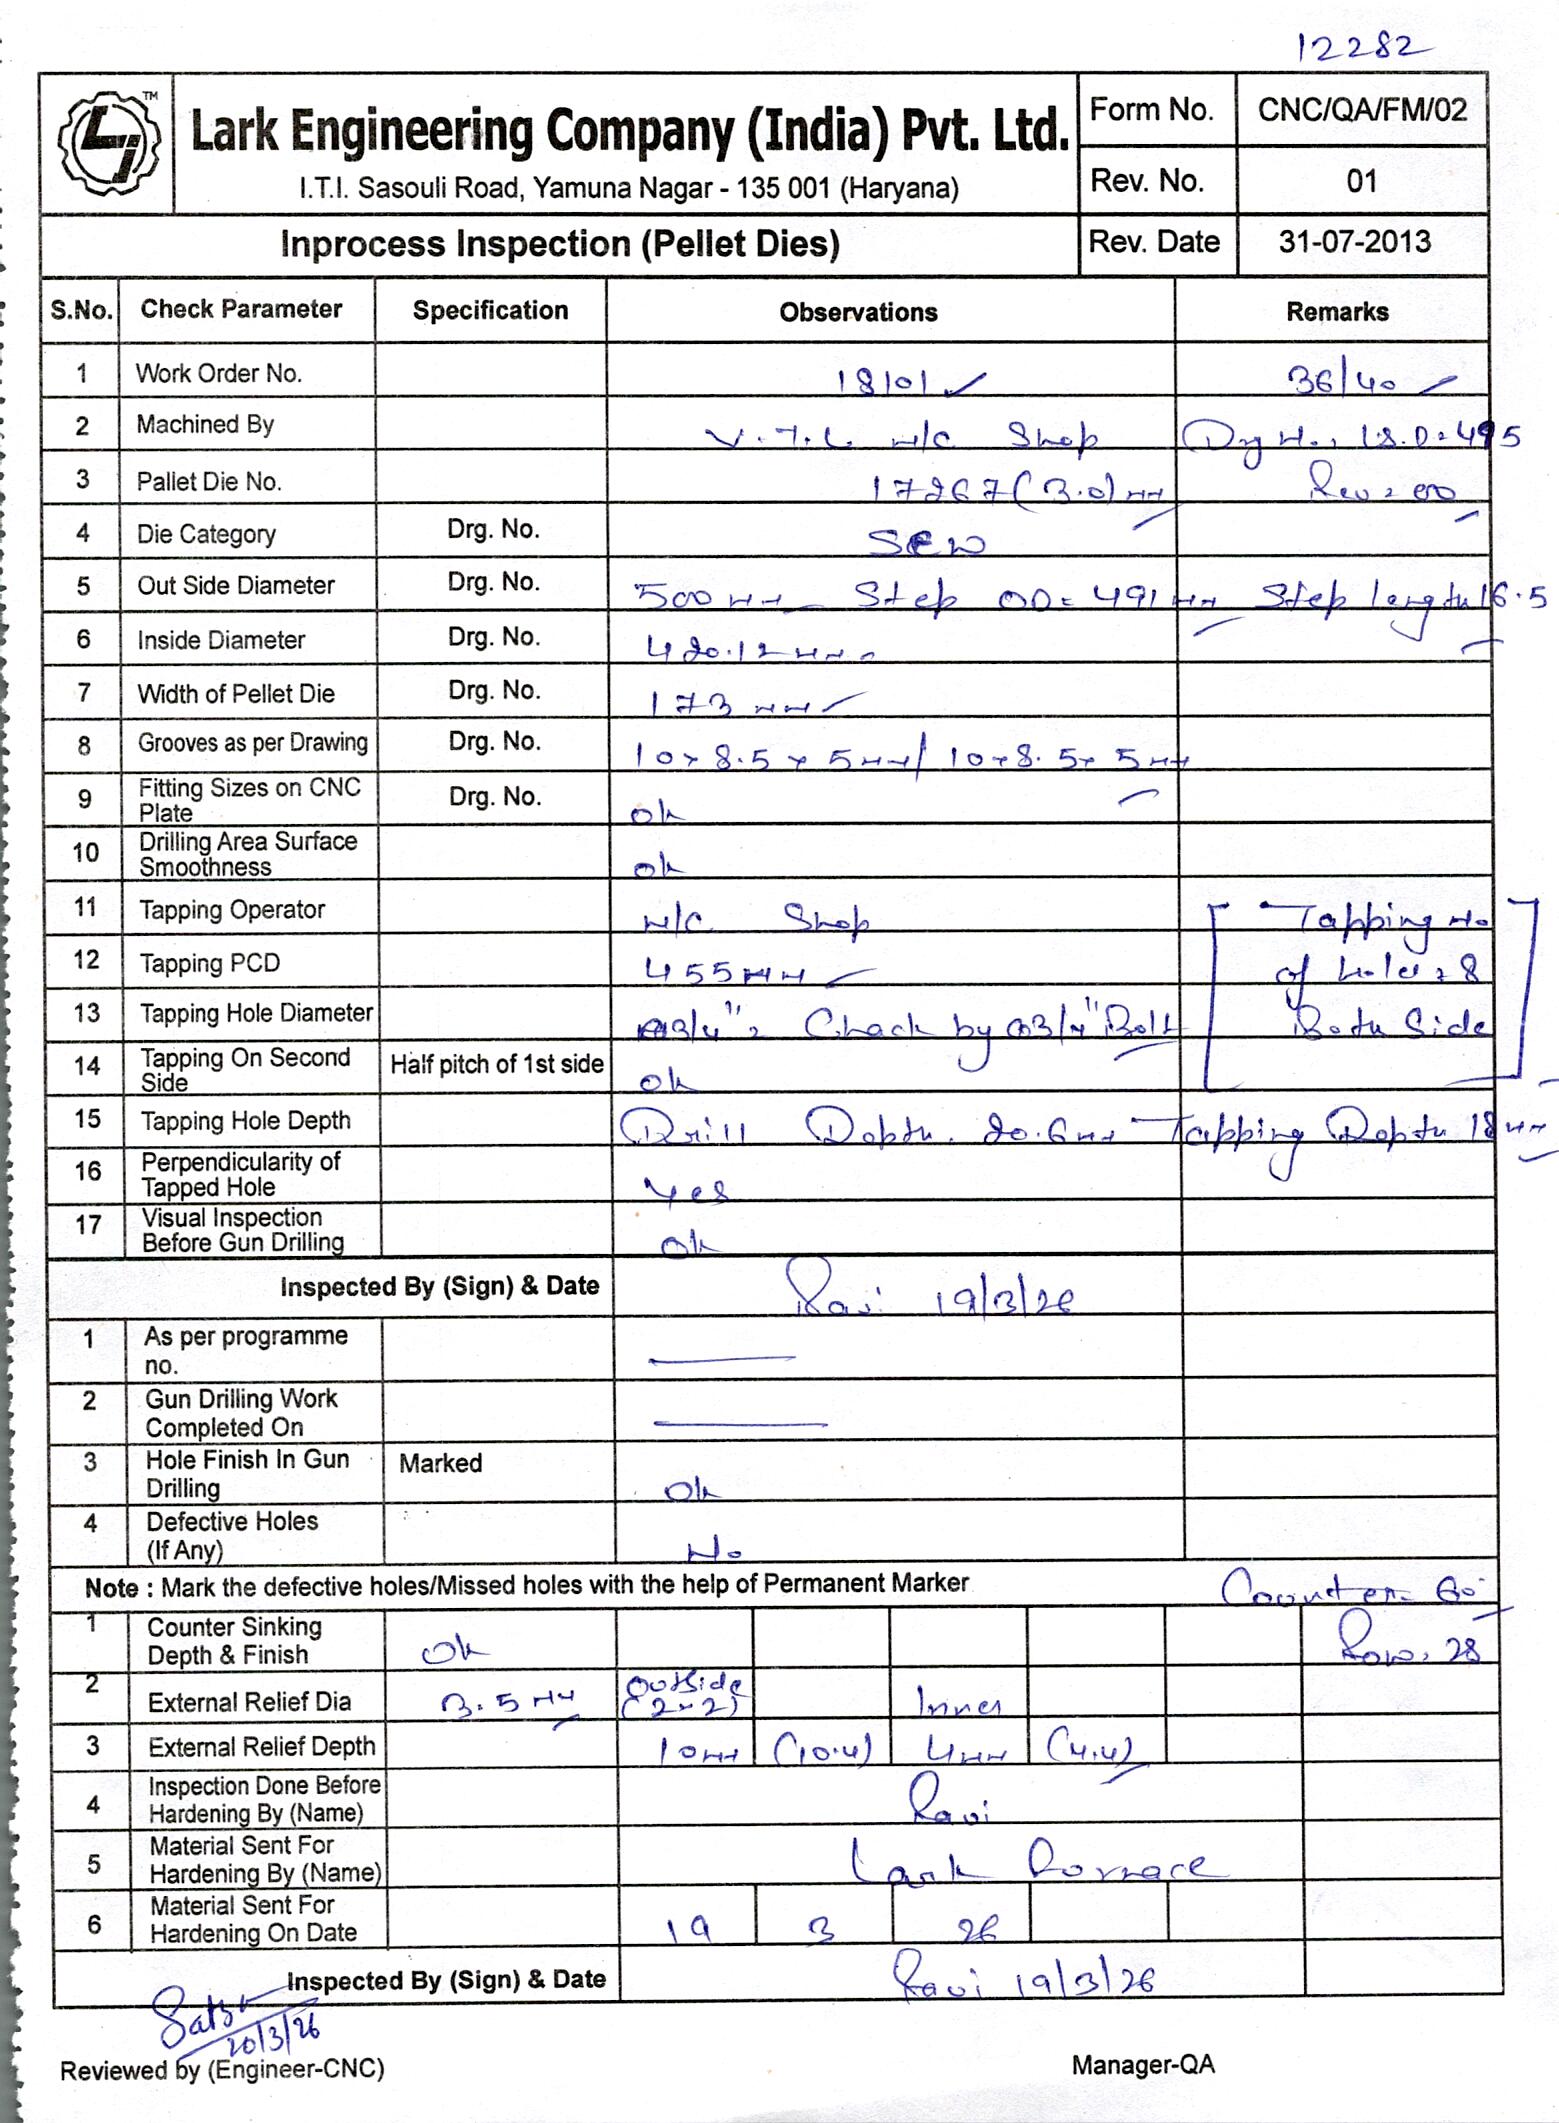 12282
TM
Lark Engineering Company (India) Pvt. Ltd.
I.T.I. Sasouli Road, Yamuna Nagar - 135 001 (Haryana)
Form No. CNC/QA/FM/02
Rev. No. 01
Inprocess Inspection (Pellet Dies) Rev. Date 31-07-2013
S.No. Check Parameter Specification Observations Remarks
1 Work Order No. 18101 ✓ 36/40
2 Machined By V.T.L M/C Shop Drg No. 495
3 Pallet Die No. 17267 (3.0) mm Rev = 00
4 Die Category Drg. No. SEW
5 Out Side Diameter Drg. No. 500 mm Step OD = 491 mm Step length 16.5
6 Inside Diameter Drg. No. 420.12 mm
7 Width of Pellet Die Drg. No. 173 mm
8 Grooves as per Drawing Drg. No. 10 x 8.5 x 5 mm / 10 x 8.5 x 5 mm
9 Fitting Sizes on CNC Plate Drg. No. ok
10 Drilling Area Surface Smoothness ok
11 Tapping Operator M/C Shop Tapping No
12 Tapping PCD 455 mm of holes = 8
13 Tapping Hole Diameter 3/4" = Chack by 3/4" Bolt Both Side
14 Tapping On Second Side Half pitch of 1st side ok
15 Tapping Hole Depth Drill Depth. 20.6 mm Tapping Depth 18 mm
16 Perpendicularity of Tapped Hole Yes
17 Visual Inspection Before Gun Drilling ok
Inspected By (Sign) & Date Ravi 19/3/26
1 As per programme no.
2 Gun Drilling Work Completed On
3 Hole Finish In Gun Drilling Marked ok
4 Defective Holes (If Any) No
Note : Mark the defective holes/Missed holes with the help of Permanent Marker Counter = 60°
1 Counter Sinking Depth & Finish ok Row = 28
2 External Relief Dia 3.5 mm Outside (2-2) Inner
3 External Relief Depth 10 mm (10.4) 4 mm (4.4)
4 Inspection Done Before Hardening By (Name) Ravi
5 Material Sent For Hardening By (Name) Lark Fornace
6 Material Sent For Hardening On Date 19 3 26
Inspected By (Sign) & Date Ravi 19/3/26
20/3/26
Reviewed by (Engineer-CNC) Manager-QA